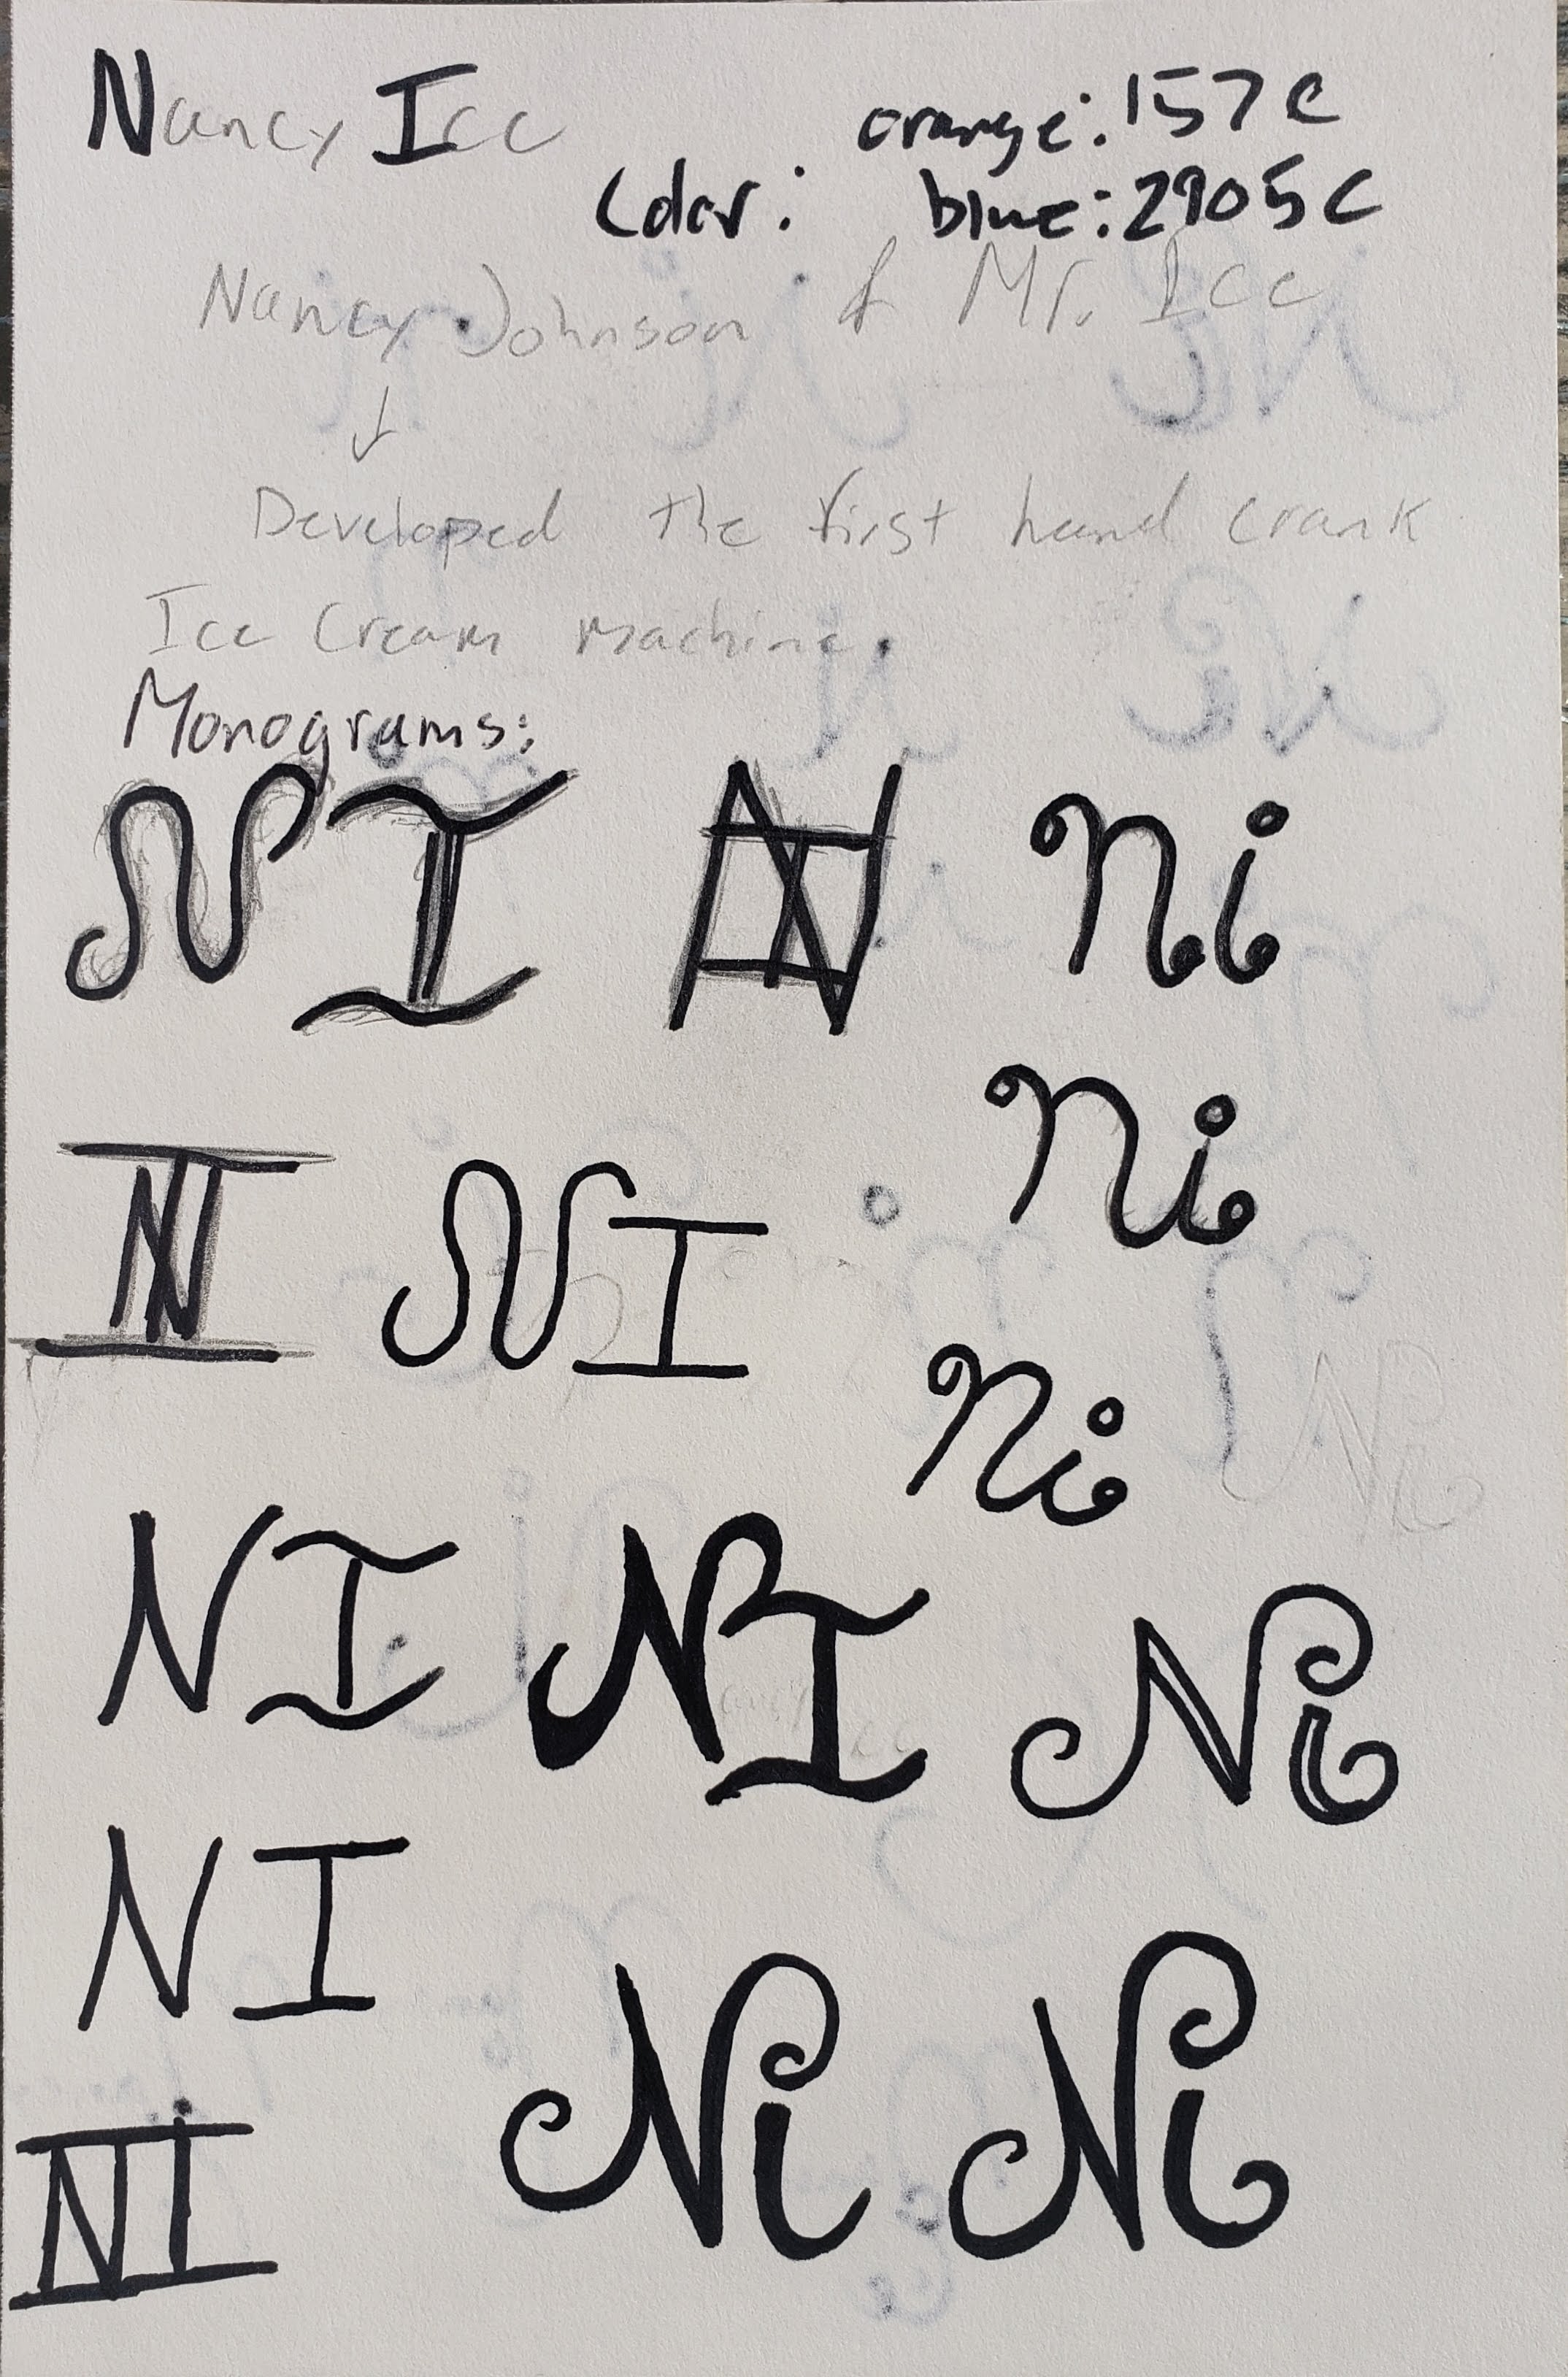 Nancy Ice
orange: 157 C
Color: blue: 2905 C
Nancy Johnson & Mr. Ice
Developed the first hand crank
Ice Cream machine.
Monograms:
NI NI Ni
Ni
NI NI
Ni Ni
NI NI Ni
NI
Ni Ni
NI